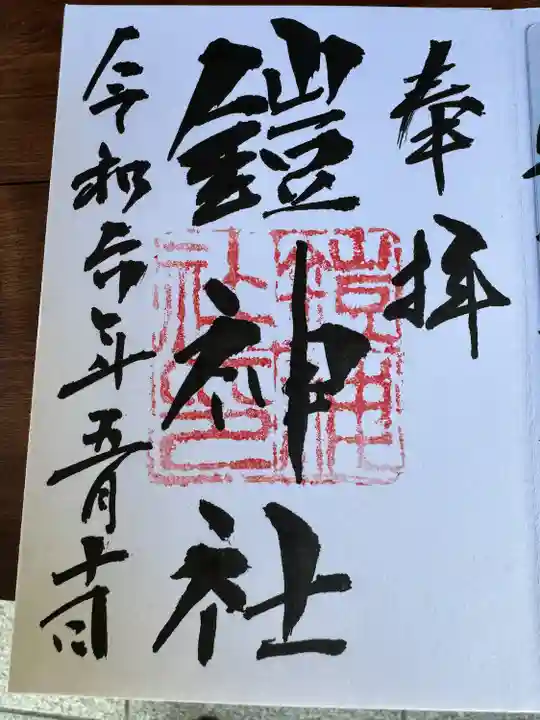 奉拝
鎧神社
鎧神社印
令和六年五月十一日